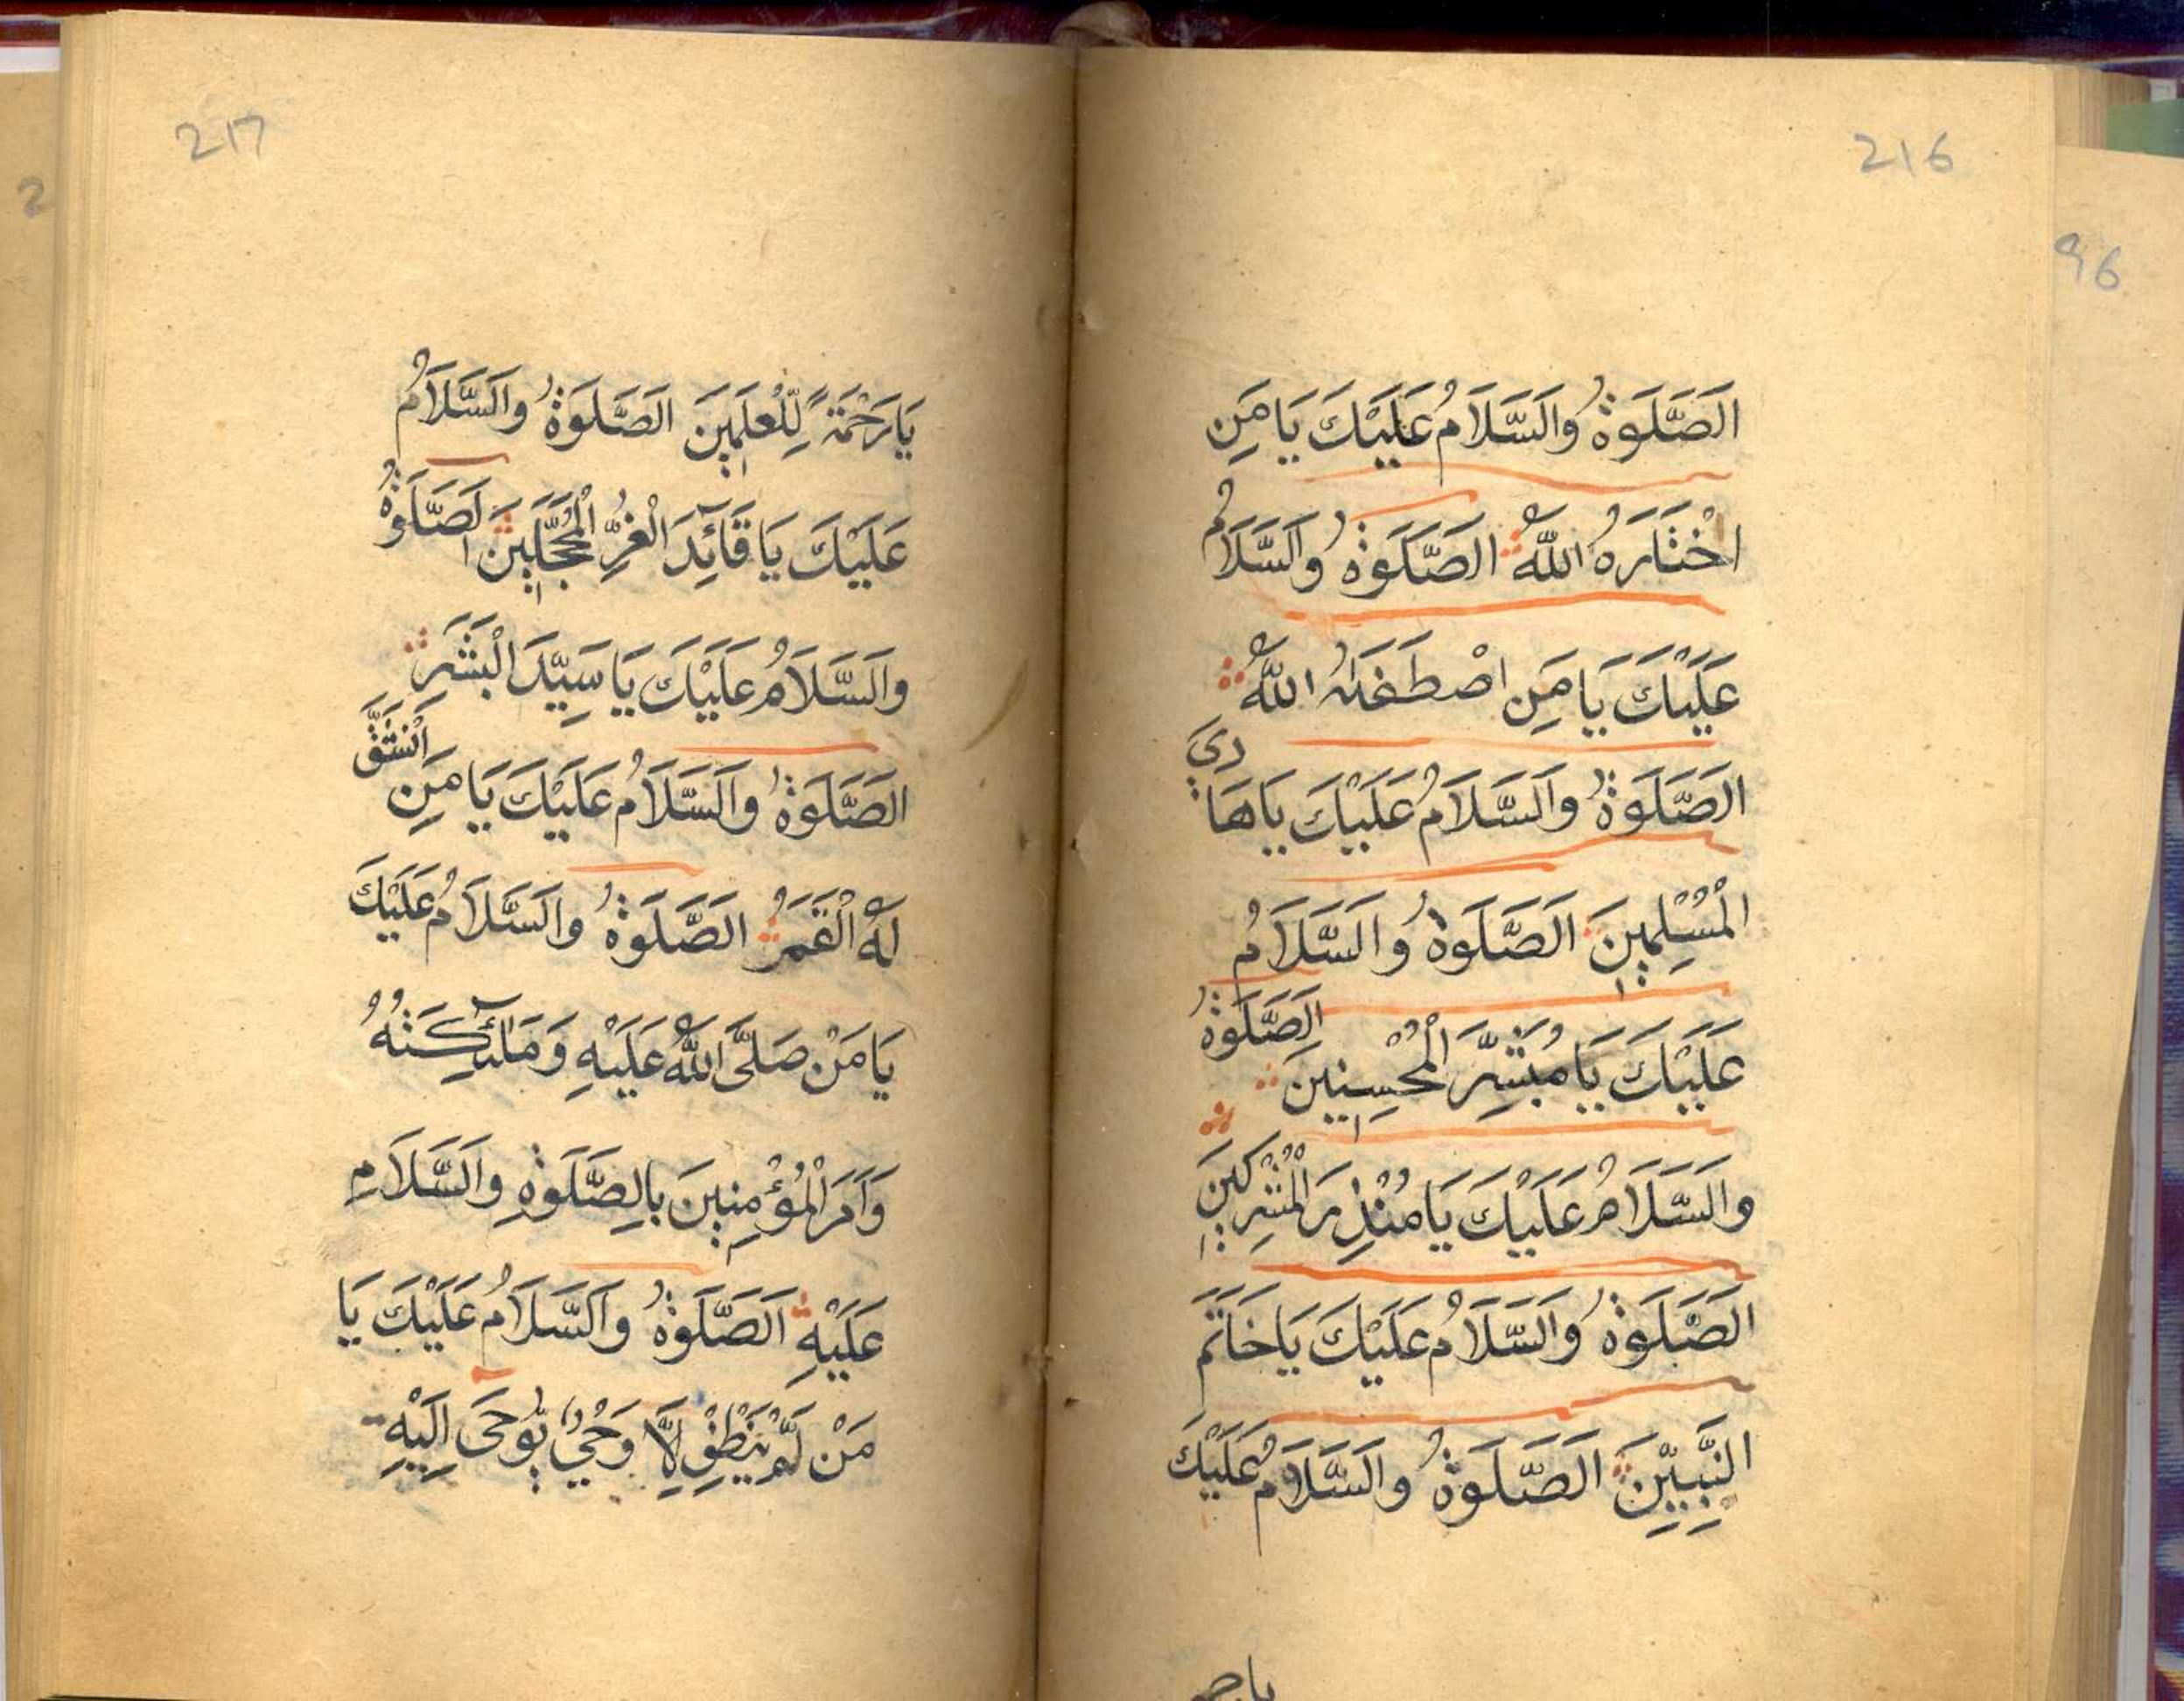 216
الصَّلَوٰةُ وَالسَّلَامُ عَلَيْكَ يَا مَنِ
اخْتَارَهُ اللّٰهُ الصَّلَوٰةُ وَالسَّلَامُ
عَلَيْكَ يَا مَنِ اصْطَفَاهُ اللّٰهُ
الصَّلَوٰةُ وَالسَّلَامُ عَلَيْكَ يَا هَادِيَ
الْمُسْلِمِينَ الصَّلَوٰةُ وَالسَّلَامُ
عَلَيْكَ يَا مُبَشِّرَ الْمُحْسِنِينَ الصَّلَوٰةُ
وَالسَّلَامُ عَلَيْكَ يَا مُنْذِرَ الْمُشْرِكِينَ
الصَّلَوٰةُ وَالسَّلَامُ عَلَيْكَ يَا خَاتَمَ
النَّبِيِّينَ الصَّلَوٰةُ وَالسَّلَامُ عَلَيْكَ
217
يَا رَحْمَةً لِّلْعٰلَمِينَ الصَّلَوٰةُ وَالسَّلَامُ
عَلَيْكَ يَا قَآئِدَ الْغُرِّ الْمُحَجَّلِينَ الصَّلَوٰةُ
وَالسَّلَامُ عَلَيْكَ يَا سَيِّدَ الْبَشَرِ
الصَّلَوٰةُ وَالسَّلَامُ عَلَيْكَ يَا مَنِ انْشَقَّ
لَهُ الْقَمَرُ الصَّلَوٰةُ وَالسَّلَامُ عَلَيْكَ
يَا مَنْ صَلَّى اللّٰهُ عَلَيْهِ وَمَلٰٓئِكَتُهُ
وَاَمَرَ الْمُؤْمِنِينَ بِالصَّلَوٰةِ وَالسَّلَامِ
عَلَيْهِ الصَّلَوٰةُ وَالسَّلَامُ عَلَيْكَ يَا
مَنْ لَّمْ يَنْطِقْ اِلَّا وَحْيٌ يُّوحٰى اِلَيْهِ
96
2